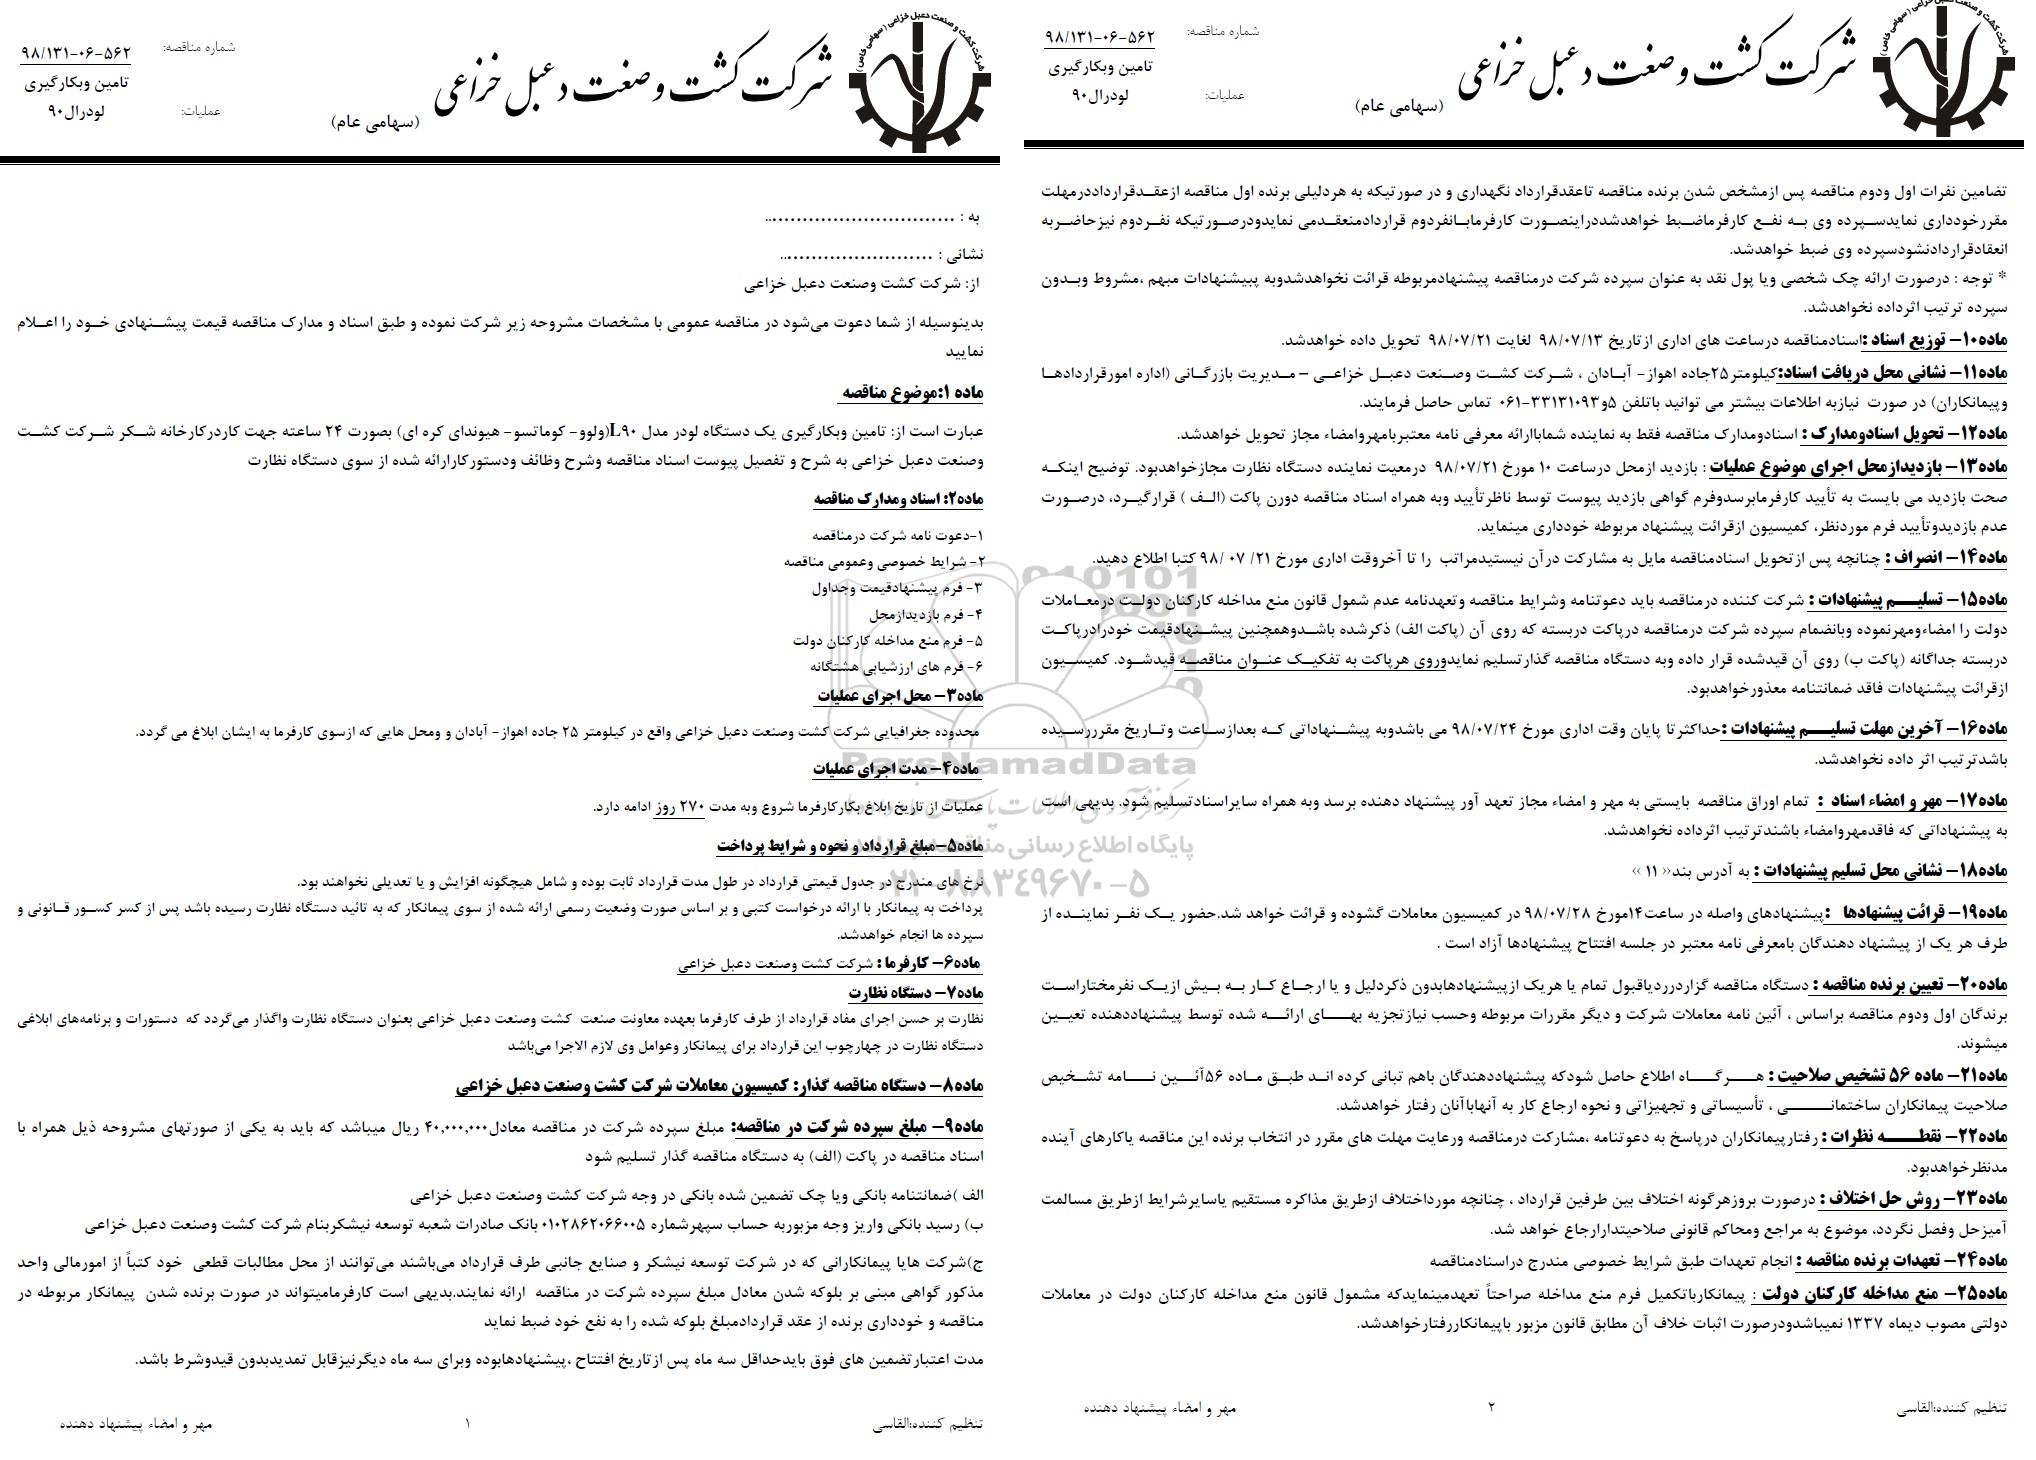 شماره مناقصه:
۹۸/۱۳۱-۰۶-۵۶۲
تامین وبکارگیری
عملیات:
لودرال۹۰
شرکت کشت و صنعت دعبل خزاعی
(سهامی عام)
شرکت کشت و صنعت دعبل خزاعی (سهامی خاص)
به : ................................
نشانی : ..........................
از: شرکت کشت وصنعت دعبل خزاعی
بدینوسیله از شما دعوت می‌شود در مناقصه عمومی با مشخصات مشروحه زیر شرکت نموده و طبق اسناد و مدارک مناقصه قیمت پیشنهادی خود را اعلام
نمایید
ماده ۱:موضوع مناقصه
عبارت است از: تامین وبکارگیری یک دستگاه لودر مدل L۹۰(ولوو- کوماتسو- هیوندای کره ای) بصورت ۲۴ ساعته جهت کاردرکارخانه شکر شرکت کشت
وصنعت دعبل خزاعی به شرح و تفصیل پیوست اسناد مناقصه وشرح وظائف ودستورکارارائه شده از سوی دستگاه نظارت
ماده۲: اسناد ومدارک مناقصه
۱-دعوت نامه شرکت درمناقصه
۲- شرایط خصوصی وعمومی مناقصه
۳- فرم پیشنهادقیمت وجداول
۴- فرم بازدیدازمحل
۵- فرم منع مداخله کارکنان دولت
۶- فرم های ارزشیابی هشتگانه
ماده۳- محل اجرای عملیات
محدوده جغرافیایی شرکت کشت وصنعت دعبل خزاعی واقع در کیلومتر ۲۵ جاده اهواز- آبادان و ومحل هایی که ازسوی کارفرما به ایشان ابلاغ می گردد.
ماده۴- مدت اجرای عملیات
عملیات از تاریخ ابلاغ بکارکارفرما شروع وبه مدت ۲۷۰ روز ادامه دارد.
ماده۵-مبلغ قرارداد و نحوه و شرایط پرداخت
نرخ های مندرج در جدول قیمتی قرارداد در طول مدت قرارداد ثابت بوده و شامل هیچگونه افزایش و یا تعدیلی نخواهند بود.
پرداخت به پیمانکار با ارائه درخواست کتبی و بر اساس صورت وضعیت رسمی ارائه شده از سوی پیمانکار که به تائید دستگاه نظارت رسیده باشد پس از کسر کسور قانونی و
سپرده ها انجام خواهدشد.
ماده۶- کارفرما : شرکت کشت وصنعت دعبل خزاعی
ماده۷- دستگاه نظارت
نظارت بر حسن اجرای مفاد قرارداد از طرف کارفرما بعهده معاونت صنعت کشت وصنعت دعبل خزاعی بعنوان دستگاه نظارت واگذار می‌گردد که دستورات و برنامه‌های ابلاغی
دستگاه نظارت در چهارچوب این قرارداد برای پیمانکار وعوامل وی لازم الاجرا می‌باشد
ماده۸- دستگاه مناقصه گذار: کمیسیون معاملات شرکت کشت وصنعت دعبل خزاعی
ماده۹- مبلغ سپرده شرکت در مناقصه: مبلغ سپرده شرکت در مناقصه معادل۴۰,۰۰۰,۰۰۰ ریال میباشد که باید به یکی از صورتهای مشروحه ذیل همراه با
اسناد مناقصه در پاکت (الف) به دستگاه مناقصه گذار تسلیم شود
الف )ضمانتنامه بانکی ویا چک تضمین شده بانکی در وجه شرکت کشت وصنعت دعبل خزاعی
ب) رسید بانکی واریز وجه مزبوربه حساب سپهرشماره ۰۱۰۲۸۶۲۰۶۶۰۰۵ بانک صادرات شعبه توسعه نیشکربنام شرکت کشت وصنعت دعبل خزاعی
ج)شرکت هایا پیمانکارانی که در شرکت توسعه نیشکر و صنایع جانبی طرف قرارداد می‌باشند می‌توانند از محل مطالبات قطعی خود کتباً از امورمالی واحد
مذکور گواهی مبنی بر بلوکه شدن معادل مبلغ سپرده شرکت در مناقصه ارائه نمایند.بدیهی است کارفرمامیتواند در صورت برنده شدن پیمانکار مربوطه در
مناقصه و خودداری برنده از عقد قراردادمبلغ بلوکه شده را به نفع خود ضبط نماید
مدت اعتبارتضمین های فوق بایدحداقل سه ماه پس ازتاریخ افتتاح ،پیشنهادهابوده وبرای سه ماه دیگرنیزقابل تمدیدبدون قیدوشرط باشد.
تنظیم کننده:القاسی
۱
مهر و امضاء پیشنهاد دهنده
شماره مناقصه:
۹۸/۱۳۱-۰۶-۵۶۲
تامین وبکارگیری
عملیات:
لودرال۹۰
شرکت کشت و صنعت دعبل خزاعی
(سهامی عام)
شرکت کشت و صنعت دعبل خزاعی (سهامی خاص)
تضامین نفرات اول ودوم مناقصه پس ازمشخص شدن برنده مناقصه تاعقدقرارداد نگهداری و در صورتیکه به هردلیلی برنده اول مناقصه ازعقدقرارداددرمهلت
مقررخودداری نمایدسپرده وی به نفع کارفرماضبط خواهدشددراینصورت کارفرمابانفردوم قراردادمنعقدمی نمایدودرصورتیکه نفردوم نیزحاضربه
انعقادقراردادنشودسپرده وی ضبط خواهدشد.
* توجه : درصورت ارائه چک شخصی ویا پول نقد به عنوان سپرده شرکت درمناقصه پیشنهادمربوطه قرائت نخواهدشدوبه پبیشنهادات مبهم ،مشروط وبدون
سپرده ترتیب اثرداده نخواهدشد.
ماده۱۰- توزیع اسناد :اسنادمناقصه درساعت های اداری ازتاریخ ۹۸/۰۷/۱۳ لغایت ۹۸/۰۷/۲۱ تحویل داده خواهدشد.
ماده۱۱- نشانی محل دریافت اسناد:کیلومتر۲۵جاده اهواز- آبادان ، شرکت کشت وصنعت دعبل خزاعی – مدیریت بازرگانی (اداره امورقراردادها
وپیمانکاران) در صورت نیازبه اطلاعات بیشتر می توانید باتلفن ۵و۳۳۱۳۱۰۹۳-۰۶۱ تماس حاصل فرمایند.
ماده۱۲- تحویل اسنادومدارک : اسنادومدارک مناقصه فقط به نماینده شماباارائه معرفی نامه معتبربامهروامضاء مجاز تحویل خواهدشد.
ماده۱۳- بازدیدازمحل اجرای موضوع عملیات : بازدید ازمحل درساعت ۱۰ مورخ ۹۸/۰۷/۲۱ درمعیت نماینده دستگاه نظارت مجازخواهدبود. توضیح اینکه
صحت بازدید می بایست به تأیید کارفرمابرسدوفرم گواهی بازدید پیوست توسط ناظرتأیید وبه همراه اسناد مناقصه دورن پاکت (الف ) قرارگیرد، درصورت
عدم بازدیدوتأیید فرم موردنظر، کمیسیون ازقرائت پیشنهاد مربوطه خودداری مینماید.
ماده۱۴- انصراف : چنانچه پس ازتحویل اسنادمناقصه مایل به مشارکت درآن نیستیدمراتب را تا آخروقت اداری مورخ ۲۱/ ۰۷ /۹۸ کتبا اطلاع دهید.
ماده۱۵- تسلیم پیشنهادات : شرکت کننده درمناقصه باید دعوتنامه وشرایط مناقصه وتعهدنامه عدم شمول قانون منع مداخله کارکنان دولت درمعاملات
دولت را امضاءومهرنموده وبانضمام سپرده شرکت درمناقصه درپاکت دربسته که روی آن (پاکت الف) ذکرشده باشدوهمچنین پیشنهادقیمت خودرادرپاکت
دربسته جداگانه (پاکت ب) روی آن قیدشده قرار داده وبه دستگاه مناقصه گذارتسلیم نمایدوروی هرپاکت به تفکیک عنوان مناقصه قیدشود. کمیسیون
ازقرائت پیشنهادات فاقد ضمانتنامه معذورخواهدبود.
ماده۱۶- آخرین مهلت تسلیم پیشنهادات :حداکثرتا پایان وقت اداری مورخ ۹۸/۰۷/۲۴ می باشدوبه پیشنهاداتی که بعدازساعت وتاریخ مقرررسیده
باشدترتیب اثر داده نخواهدشد.
ماده۱۷- مهر و امضاء اسناد : تمام اوراق مناقصه بایستی به مهر و امضاء مجاز تعهد آور پیشنهاد دهنده برسد وبه همراه سایراسنادتسلیم شود. بدیهی است
به پیشنهاداتی که فاقدمهروامضاء باشندترتیب اثرداده نخواهدشد.
ماده۱۸- نشانی محل تسلیم پیشنهادات : به آدرس بند‹‹ ۱۱ ››
ماده۱۹- قرائت پیشنهادها :پیشنهادهای واصله در ساعت۱۴مورخ ۹۸/۰۷/۲۸ در کمیسیون معاملات گشوده و قرائت خواهد شد.حضور یک نفر نماینده از
طرف هر یک از پیشنهاد دهندگان بامعرفی نامه معتبر در جلسه افتتاح پیشنهادها آزاد است .
ماده۲۰- تعیین برنده مناقصه : دستگاه مناقصه گزاردرردیاقبول تمام یا هریک ازپیشنهادهابدون ذکردلیل و یا ارجاع کار به بیش ازیک نفرمختاراست
برندگان اول ودوم مناقصه براساس ، آئین نامه معاملات شرکت و دیگر مقررات مربوطه وحسب نیازتجزیه بهای ارائه شده توسط پیشنهاددهنده تعیین
میشوند.
ماده۲۱- ماده ۵۶ تشخیص صلاحیت : هرگاه اطلاع حاصل شودکه پیشنهاددهندگان باهم تبانی کرده اند طبق ماده ۵۶آئین نامه تشخیص
صلاحیت پیمانکاران ساختمانی ، تأسیساتی و تجهیزاتی و نحوه ارجاع کار به آنهاباآنان رفتار خواهدشد.
ماده۲۲- نقطه نظرات : رفتارپیمانکاران درپاسخ به دعوتنامه ،مشارکت درمناقصه ورعایت مهلت های مقرر در انتخاب برنده این مناقصه یاکارهای آینده
مدنظرخواهدبود.
ماده۲۳- روش حل اختلاف : درصورت بروزهرگونه اختلاف بین طرفین قرارداد ، چنانچه مورداختلاف ازطریق مذاکره مستقیم یاسایرشرایط ازطریق مسالمت
آمیزحل وفصل نگردد، موضوع به مراجع ومحاکم قانونی صلاحیتدارارجاع خواهد شد.
ماده۲۴- تعهدات برنده مناقصه : انجام تعهدات طبق شرایط خصوصی مندرج دراسنادمناقصه
ماده۲۵- منع مداخله کارکنان دولت : پیمانکارباتکمیل فرم منع مداخله صراحتاً تعهدمینمایدکه مشمول قانون منع مداخله کارکنان دولت در معاملات
دولتی مصوب دیماه ۱۳۳۷ نمیباشدودرصورت اثبات خلاف آن مطابق قانون مزبور باپیمانکاررفتارخواهدشد.
تنظیم کننده:القاسی
۲
مهر و امضاء پیشنهاد دهنده
ParsNamadData
پایگاه اطلاع رسانی مناقصه و مزایده
۰۲۱-۸۸۳۴۹۶۷۰-۵